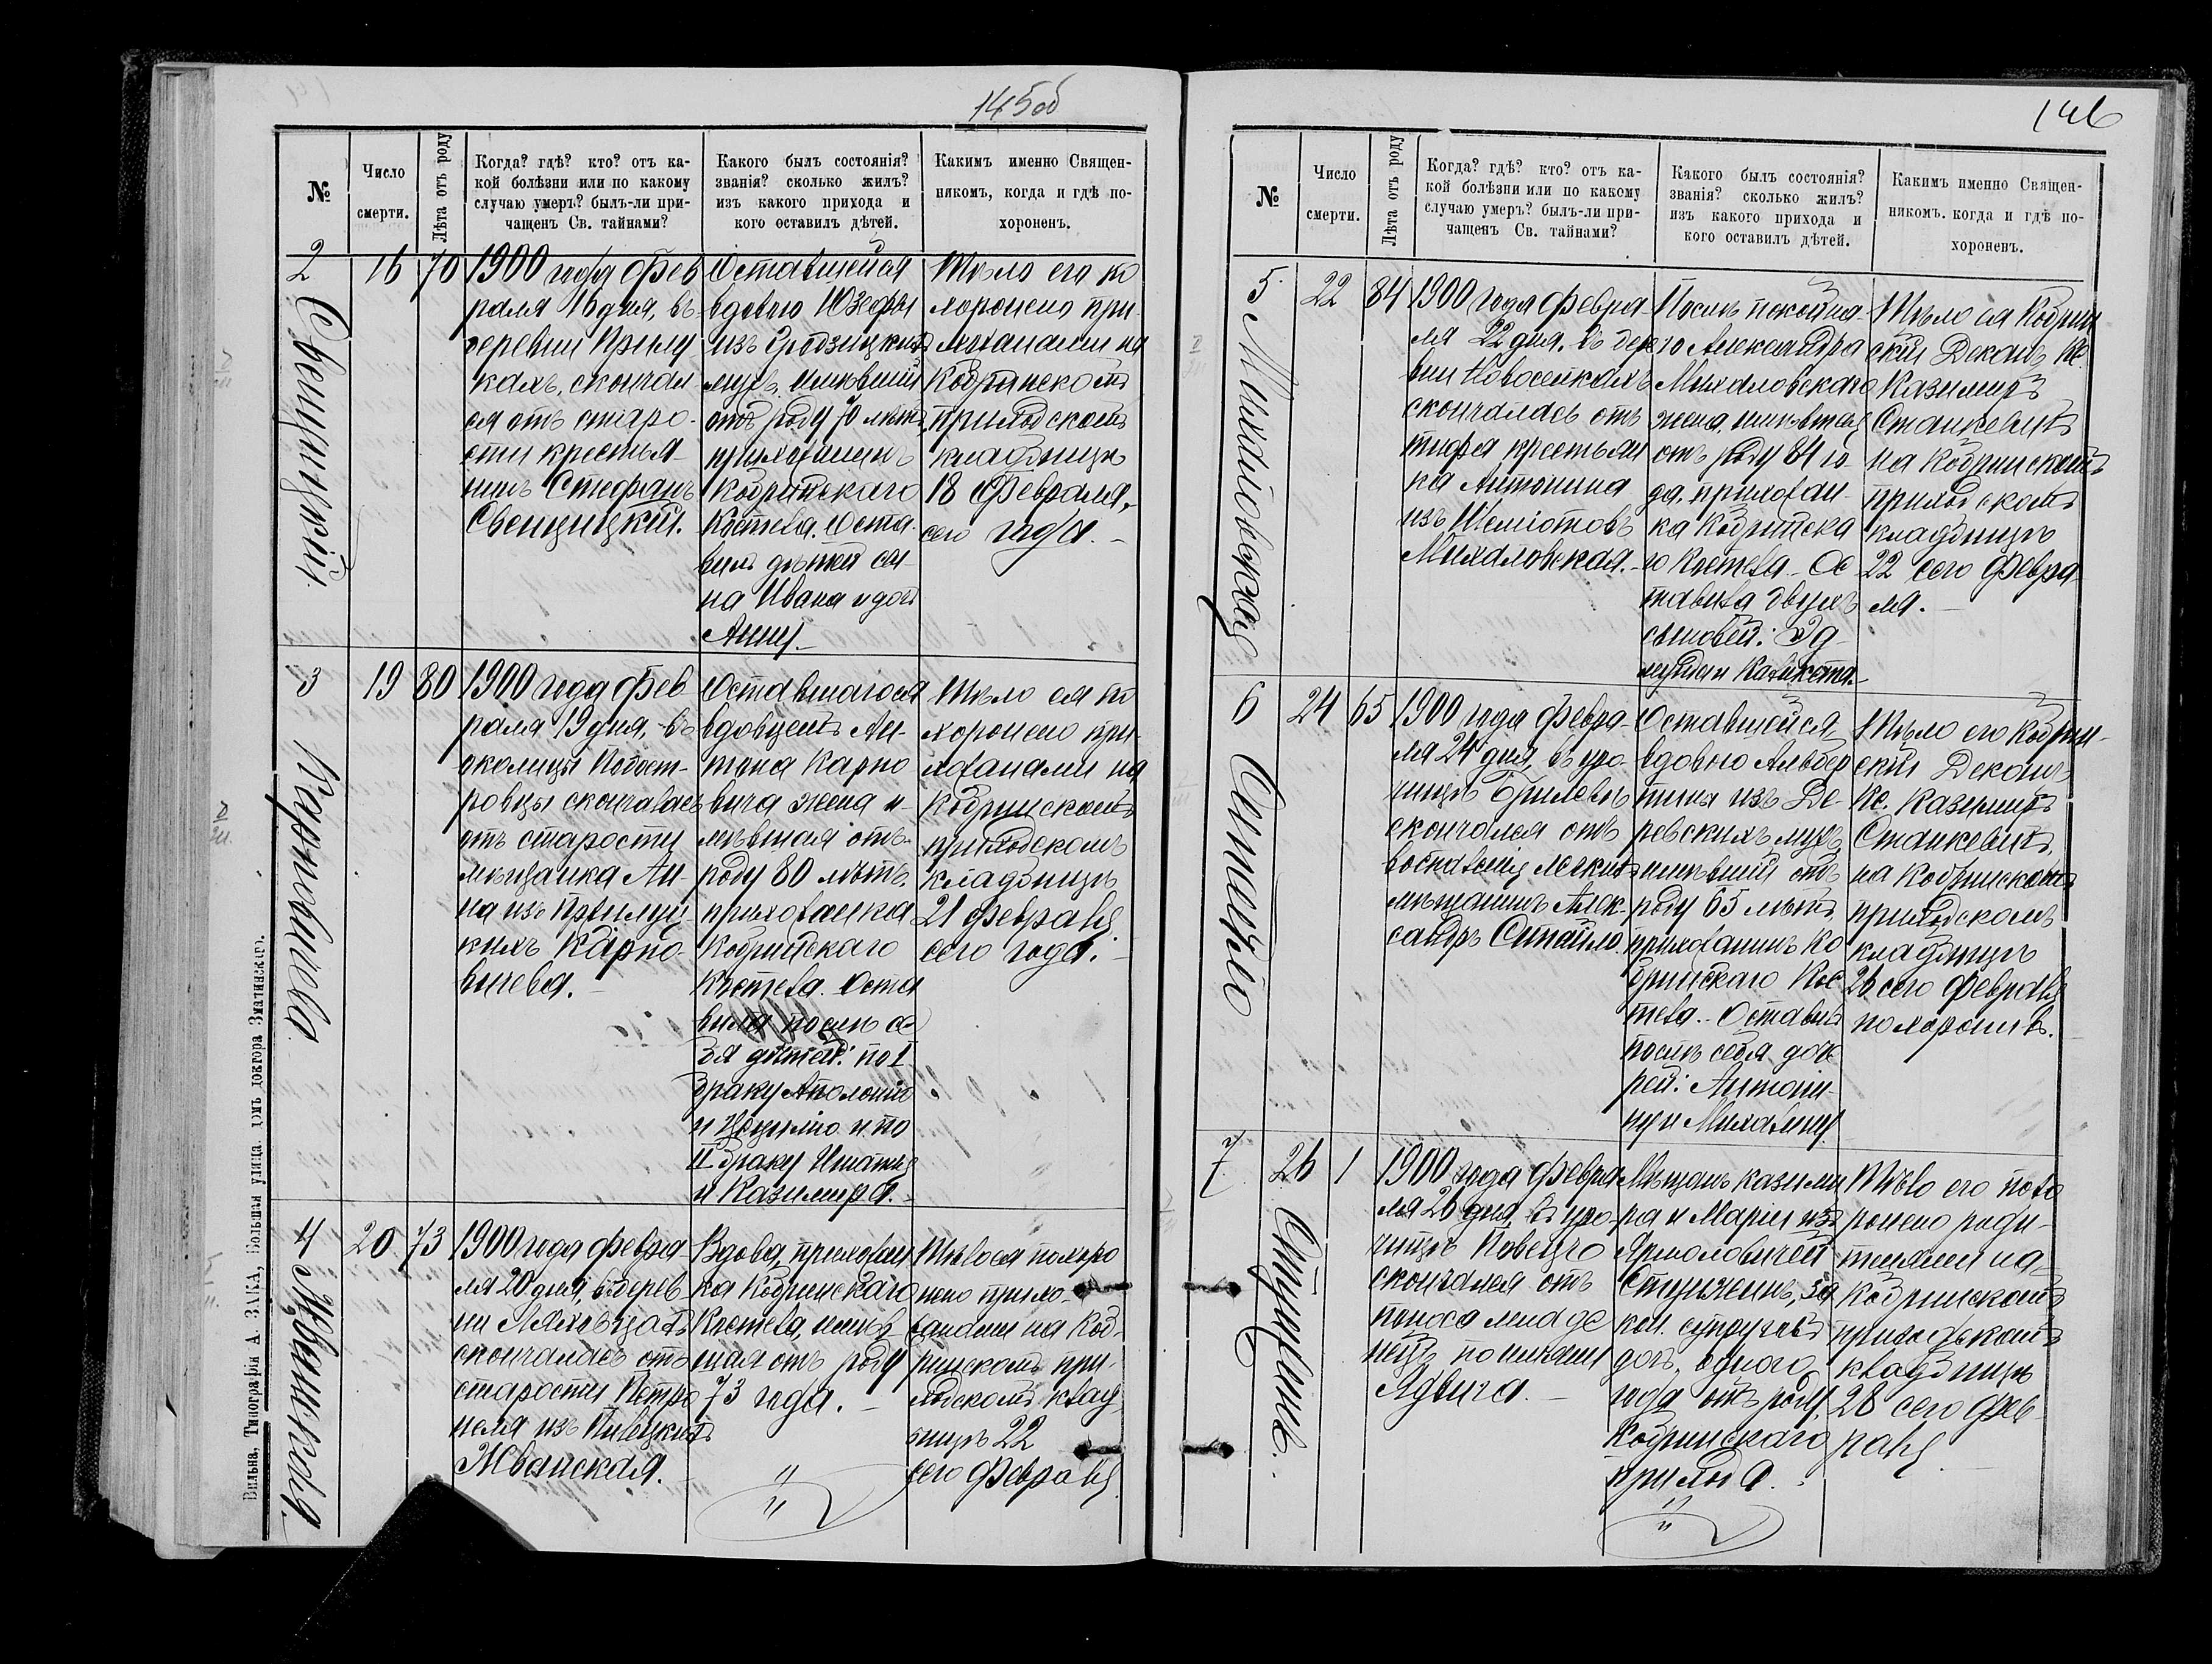 145об
№
Число
смерти.
Лѣта отъ роду
Когда? гдѣ? кто? отъ ка-
кой болѣзни или по какому
случаю умеръ? былъ-ли при-
чащенъ Св. тайнами?
Какого былъ состоянія?
званія? сколько жилъ?
изъ какого прихода и
кого оставилъ дѣтей.
Какимъ именно Священ-
никомъ, когда и гдѣ по-
хороненъ.
2
Свенцицкій
16
70
1900 года Фев
раля 16 дня, въ
деревни Прилу
кахъ, скончал
ся отъ старо-
сти крестья-
нинъ Стефанъ
Свенцицкій.
Оставшейся
вдовою Юзефы
изъ Гродзицкихъ
мужъ, имѣвшій
отъ роду 70 лѣтъ,
прихожанинъ
Кобринскаго
Костела. Оста-
вилъ дѣтей сы-
на Ивана и дочь
Анну.
Тѣло его по
хоронено при-
хожанами на
Кобринскомъ
приходскомъ
кладбищѣ
18 Февраля,
сего года.
3
Карповичева
19
80
1900 года Фев
раля 19 дня, въ
околицы
ровцы скончалась
отъ старости
мѣщанка Ан-
на изъ Прилуц-
кихъ Карпо-
вичева.
Оставшагося
вдовцемъ Ан-
тона Карпо
вича жена и-
мѣвшая отъ
роду 80 лѣтъ,
прихожанка
Кобринскаго
Костела. Оста
вила послѣ се
бя дѣтей: по I
браку Аполонію
и и по
II браку Игнатія
и Казимира.
Тѣло ея по
хоронено при-
хожанами на
Кобринскомъ
приходскомъ
кладбищѣ
21 февраля
сего года.
4
Жванская
20
73
1900 года февра-
ля 20 дня, въ дерев
ни Ляховцахъ
скончалась отъ
старости Петро
неля изъ Пивецкихъ
Жванская.
Вдова, прихожан
ка Кобринскаго
Костела, имѣв-
шая отъ роду
73 года.
Тѣло ея похоро
нено прихо-
жанами на Коб-
ринскомъ при-
ходскомъ клад-
бищѣ 22
сего Февраля
Вильна, Типографія А. ЗАКА, Большая улица, домъ доктора Зматинскаго.
146
№
Число
смерти.
Лѣта отъ роду
Когда? гдѣ? кто? отъ ка-
кой болѣзни или по какому
случаю умеръ? былъ-ли при-
чащенъ Св. тайнами?
Какого былъ состоянія?
званія? сколько жилъ?
изъ какого прихода и
кого оставилъ дѣтей.
Какимъ именно Священ-
никомъ. когда и гдѣ по-
хороненъ.
5
Михаловская
22
84
1900 года Февра-
ля 22 дня. въ дере
вни Новоселкахъ
скончалась отъ
тифа крестьян
ка Антонина
изъ
Михаловская.
Послѣ покойна-
го Александра
Михаловскаго
жена, имѣвшая
отъ роду 84 го-
да, прихожан-
ка Кобринска
го Костела. Ос
тавила двухъ
сыновей: Эд-
мунда и Каликста.
Тѣло ея Кобрин
скій Деканъ Кс.
Казимиръ
Станкевичъ
на Кобринскомъ
приходскомъ
кладбищѣ
22 сего Февра-
ля.
6
Синайло
24
65
1900 года Февра-
ля 24 дня, въ уро-
чищѣ Брилевѣ
скончался отъ
воспаленія легкихъ
мѣщанинъ Алек-
сандръ Синайло.
Оставшейся
вдовою Альбер
тины изъ Де-
ревскихъ мужъ,
имѣвшій отъ
роду 65 лѣтъ,
прихожанинъ Ко
бринскаго Кос-
тела. Оставилъ
послѣ себя доче
рей: Антони-
ну и Михалину.
Тѣло его Кобрин-
скій Деканъ
Кс. Казимиръ
Станкевичъ,
на Кобринскомъ
приходскомъ
кладбищѣ
26 сего Февраля
похоронилъ.
7
26
1
1900 года Февра
ля 26 дня, въ уро-
чищѣ
скончался отъ
поноса младе
нецъ по имени
Ядвига.
Мѣщанъ Казими
ра и Маріи изъ
Ярмоловичей
за
кон. супруговъ
дочь, одного
года отъ роду,
Кобринскаго
прихода.
Тѣло его похо
ронено роди-
телями на
Кобринскомъ
приходскомъ
кладбищѣ
28 сего Фев-
раля